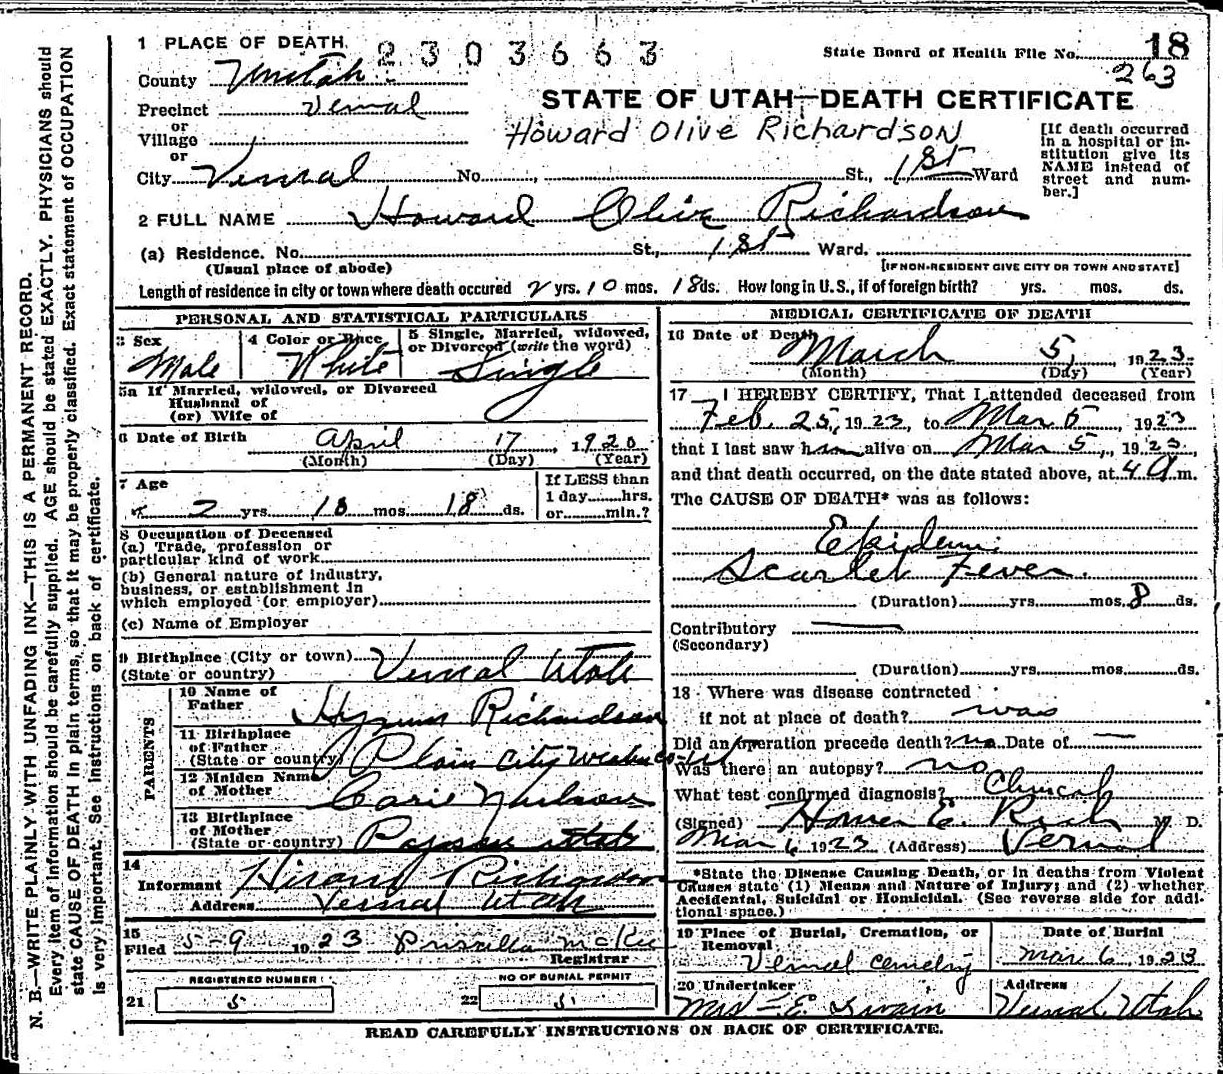 1 PLACE OF DEATH
2303663
State Board of Health File No. 18
263
County Uintah
Precinct Vernal
or
Village
or
City Vernal No. St., 1st Ward
STATE OF UTAH—DEATH CERTIFICATE
Howard Olive Richardson
[If death occurred
in a hospital or in-
stitution give its
NAME instead of
street and num-
ber.]
2 FULL NAME Howard Olive Richardson
(a) Residence. No. St., 1st Ward.
(Usual place of abode)
[IF NON-RESIDENT GIVE CITY OR TOWN AND STATE]
Length of residence in city or town where death occured 2 yrs. 10 mos. 18 ds. How long in U.S., if of foreign birth? yrs. mos. ds.
PERSONAL AND STATISTICAL PARTICULARS
3 Sex
Male
4 Color or Race
White
5 Single, Married, widowed,
or Divorced (write the word)
Single
5a If Married, widowed, or Divorced
Husband of
(or) Wife of
6 Date of Birth April 17 1920
(Month) (Day) (Year)
7 Age
2 yrs. 10 mos. 18 ds.
If LESS than
1 day hrs.
or min.?
8 Occupation of Deceased
(a) Trade, profession or
particular kind of work
(b) General nature of industry,
business, or establishment in
which employed (or employer)
(c) Name of Employer
9 Birthplace (City or town) Vernal Utah
(State or country)
PARENTS
10 Name of
Father
Hyrum Richardson
11 Birthplace
of Father
(State or country) Plain City Weber Co Ut
12 Maiden Name
of Mother
Carie
13 Birthplace
of Mother
(State or country)
14
Informant Hiram Richardson
Address Vernal Utah
15
Filed 5-9 1923 Priscilla McKee
Registrar
REGISTERED NUMBER
21 5
NO OF BURIAL PERMIT
22 5
MEDICAL CERTIFICATE OF DEATH
16 Date of Death March 5, 1923
(Month) (Day) (Year)
17 I HEREBY CERTIFY, That I attended deceased from
Feb. 25, 1923, to Mar 5, 1923
that I last saw him alive on Mar 5, 1923,
and that death occurred, on the date stated above, at 4 a m.
The CAUSE OF DEATH* was as follows:
Epidemic
Scarlet Fever.
(Duration) yrs. mos. 8 ds.
Contributory
(Secondary)
(Duration) yrs. mos. ds.
18 Where was disease contracted
if not at place of death? was
Did an operation precede death? no Date of —
Was there an autopsy? no
What test confirmed diagnosis? Clinical
(Signed) Homer E. Rich M. D.
Mar 6 1923 (Address) Vernal
*State the Disease Causing Death, or in deaths from Violent
Causes state (1) Means and Nature of Injury; and (2) whether
Accidental, Suicidal or Homicidal. (See reverse side for addi-
tional space.)
19 Place of Burial, Cremation, or
Removal
Vernal Cemetry
Date of Burial
Mar 6, 1923
20 Undertaker
Mrs E. Swain
Address
Vernal, Utah
READ CAREFULLY INSTRUCTIONS ON BACK OF CERTIFICATE.
N. B.—WRITE PLAINLY WITH UNFADING INK—THIS IS A PERMANENT RECORD.
Every item of information should be carefully supplied. AGE should be stated EXACTLY. PHYSICIANS should
state CAUSE OF DEATH in plain terms, so that it may be properly classified. Exact statement of OCCUPATION
is very important. See instructions on back of certificate.